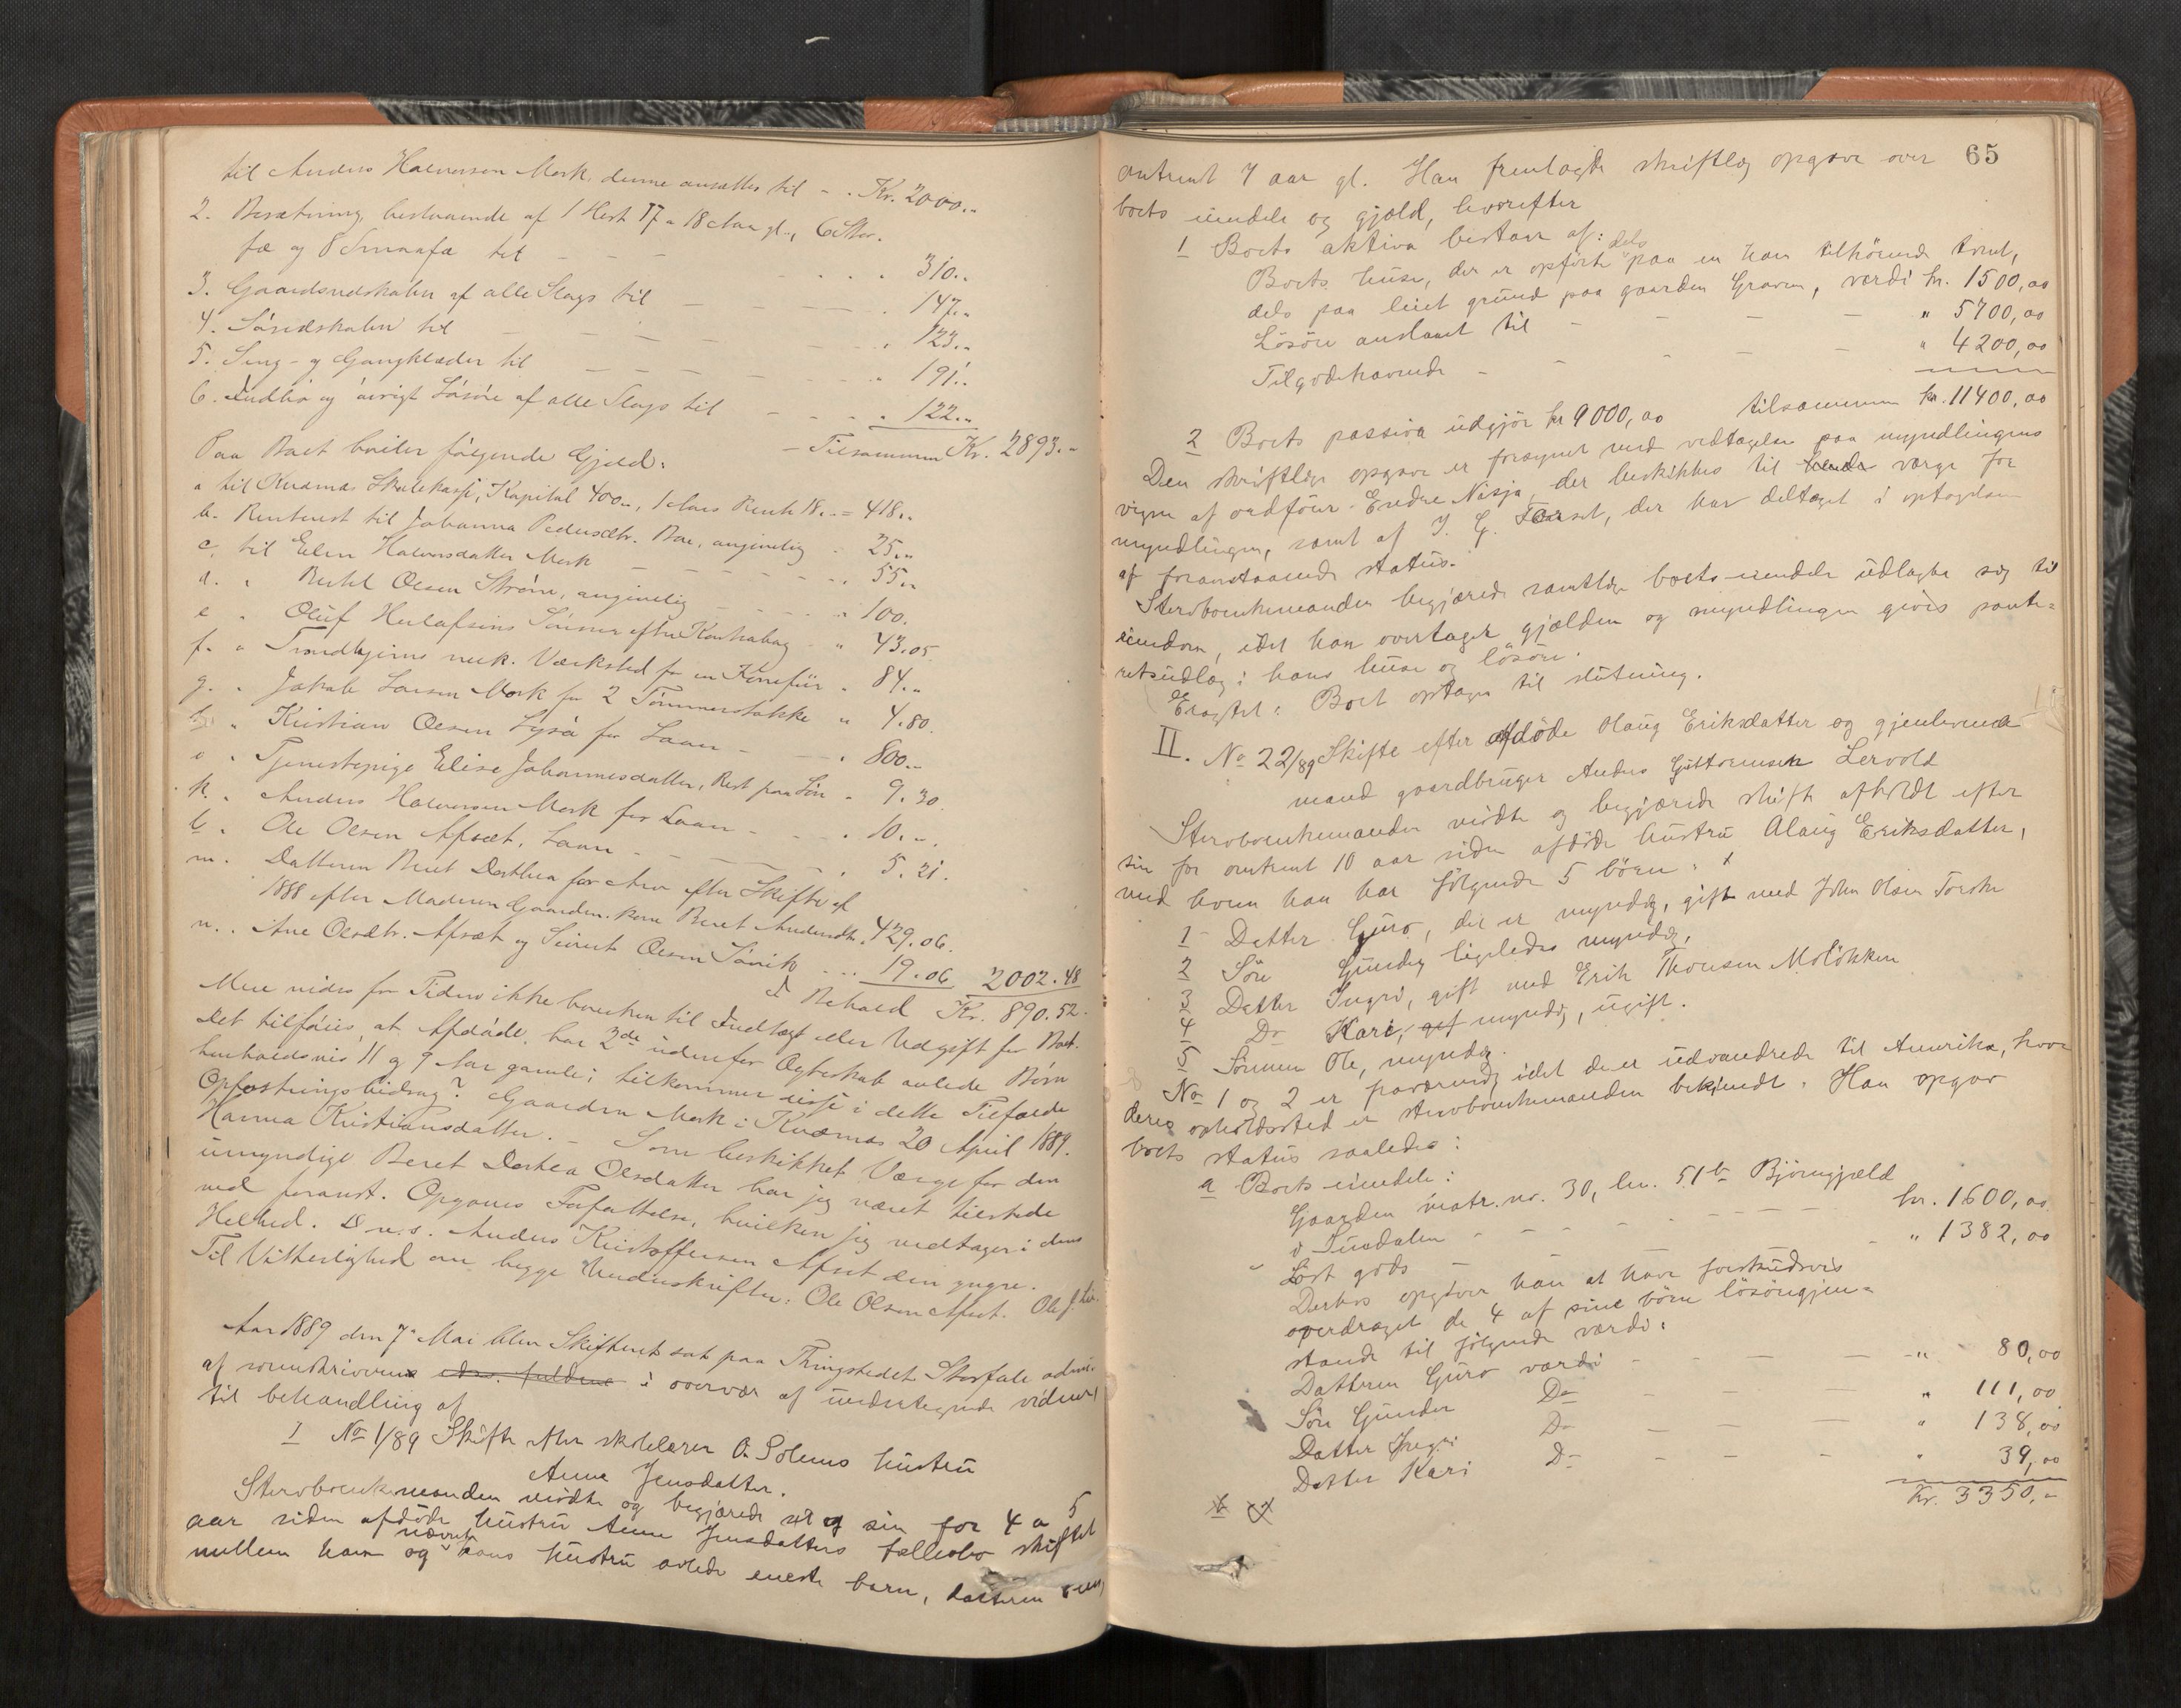 til Anders Halvorsen Mork, denne ansattes til - . Kr. 2000..
2. Besætning, bestaaende af 1 Hest 17 a 18 Aar gl., 6 Stor-
fæ og 8 Smaafæ til - - - 310..
3. Gaardsredskaber af alle Slags til - - 147..
4. Søredskaber til - - - 123..
5. Seng- og Gangklæder til - - - 191..
6. Indbo og øvrigt Løsøre af alle Slags til - - - 122..
- Tilsammen Kr. 2893.-
Paa Boet hviler følgende Gjæld:
a til Kvernæs Skolekasse, Kapital 400.., 1 Aars Rente 18.. = 418..
b. Renterest til Johanna Pedersdtr. Boe, angivelig - 25..
c. til Elen Halvorsdatter Mork - - - 55..
d. " Bertel Olsen Strøm, angivelig - - - 100.
e " Oluf Sønner efter Kontrabog - " 43.05.
f. " Trondhjems mek. Værksted for en " 84..
g. " Jakob Larsen Mork for 2 Tømmerstokke " 4.80.
h " Kristian Olsen Lysø for Laan - - . 800..
i " Tjenestepige Elise Johannesdatter, Rest paa Løn - 9.30.
k. " Anders Halvorsen Mork for Laan - - . 10.-.
l. " Ole Olsen Afsæt, Laan - - - . 5.21.
m. Datteren Beret Dorthea for Arv efter Skifte af
1888 efter Moderen Gaardm. kone Beret Andersdtr. 429.06.
n. . Ane Olsdtr. Afsæt og Sivert Olsen - .. 19.06 2002.48
I Behold Kr. 890.52.
Mere vides for Tiden ikke hverken til Indtægt eller Udgift for Boet.
Det tilføies, at Afdøde, har 2de udenfor Ægteskab avlede Børn
henholdsvis 11 og 9 Aar gamle; tilkommer disse i dette Tilfælde
Opfostringsbidrag? Gaarden Mork i Kvernæs 20 April 1889.
Hanna Kristiansdatter. - Som beskikket Værge for den
umyndige Beret Dorthea Olsdatter har jeg været tilstede
ved foranst. Opgaves Forfattelse, hvilken jeg vedtager i dens
Helhed. D.u.s. Anders Kristoffersen Afset den yngre.
Til Vitterlighed om begge Underskrifter: Ole Olsen Afset. Ole J.
Aar 1889 den 7. Mai blev Skifteret sat paa Thingstedet Storfale
af sorenskriveren i overvær af undertegnede vidner
til behandling af
I No 1/89 Skifte efter skolelærer O. Solems hustru
Anne Jensdatter.
Stervboenkemanden mødte og begjærede sit og sin for 4 a 5
aar siden afdøde hustru Anne Jensdatters fællesbo skiftet
mellem ham og nævnte hans hustru avlede eneste barn, datteren
65
omtrent 7 aar gl. Han fremlagde skriftlig opgave over
boets eiendele og gjæld, hvorefter
1 Boets aktiva bestaar af:
Boets huse, der er opførte dels paa en ham tilhørende tomt,
dels paa leiet grund paa gaarden Graven, værdi kr. 1500,00
Løsøre anslaaet til - - - " 5700,00
Tilgodehavende - - - " 4200,00
tilsammen kr. 11400,00
2 Boets passiva udgjør kr 9000,00
Den skriftlige opgave er forsynet med vedtagelse paa myndlingens
vegne af ordfører Endre Nisja, der beskikkes til værge for
myndlingen, samt af J. G. , der har deltaget i optagelsen
af foranstaaende status.
Stervboenkemanden begjærede samtlige boets eiendele udlagte sig til
eiendom, idet han overtager gjælden og myndlingen gives pante-
retsudlæg i hans huse og løsøre.
Eragtet: Boet optages til slutning.
II. No 22/89 Skifte efter afdøde Olaug Eriksdatter og gjenlevende
mand gaardbruger Anders Guttormsen Lervold
Stervboenkemanden mødte og begjærede skifte afholdt efter
sin for omtrent 10 aar siden afdøde hustru Olaug Eriksdatter,
med hvem han har følgende 5 børn:
1 Datter Guro, der er myndig, gift med John Olsen Torske
2 Søn Gunder ligeledes myndig,
3 Datter Ingri, gift med Erik Thoresen Moløkken
4 Do Kari, myndig, ugift.
5 Sønnen Ole, myndig.
No 1 og 2 er fraværende idet de er udvandrede til Amerika, hvor
deres opholdssted er stervboenkemanden bekjendt. Han opgav
boets status saaledes:
a Boets eiendele:
Gaarden matr. no. 30, lnr. 51b Bjørngjeld
i Sundalen - - - - - kr. 1600,00
Løst gods - - - " 1382,00
Derhos opgiver han at have forskudsvis
overdraget de 4 af sine børn løsøregjen-
stande til følgende værdi:
Datteren Guro værdi - - - " 80,00
Søn Gunder Do - - - " 111,00
Datter Ingri Do - - - " 138,00
Datter Kari Do - - - " 39,00
Kr. 3350,-